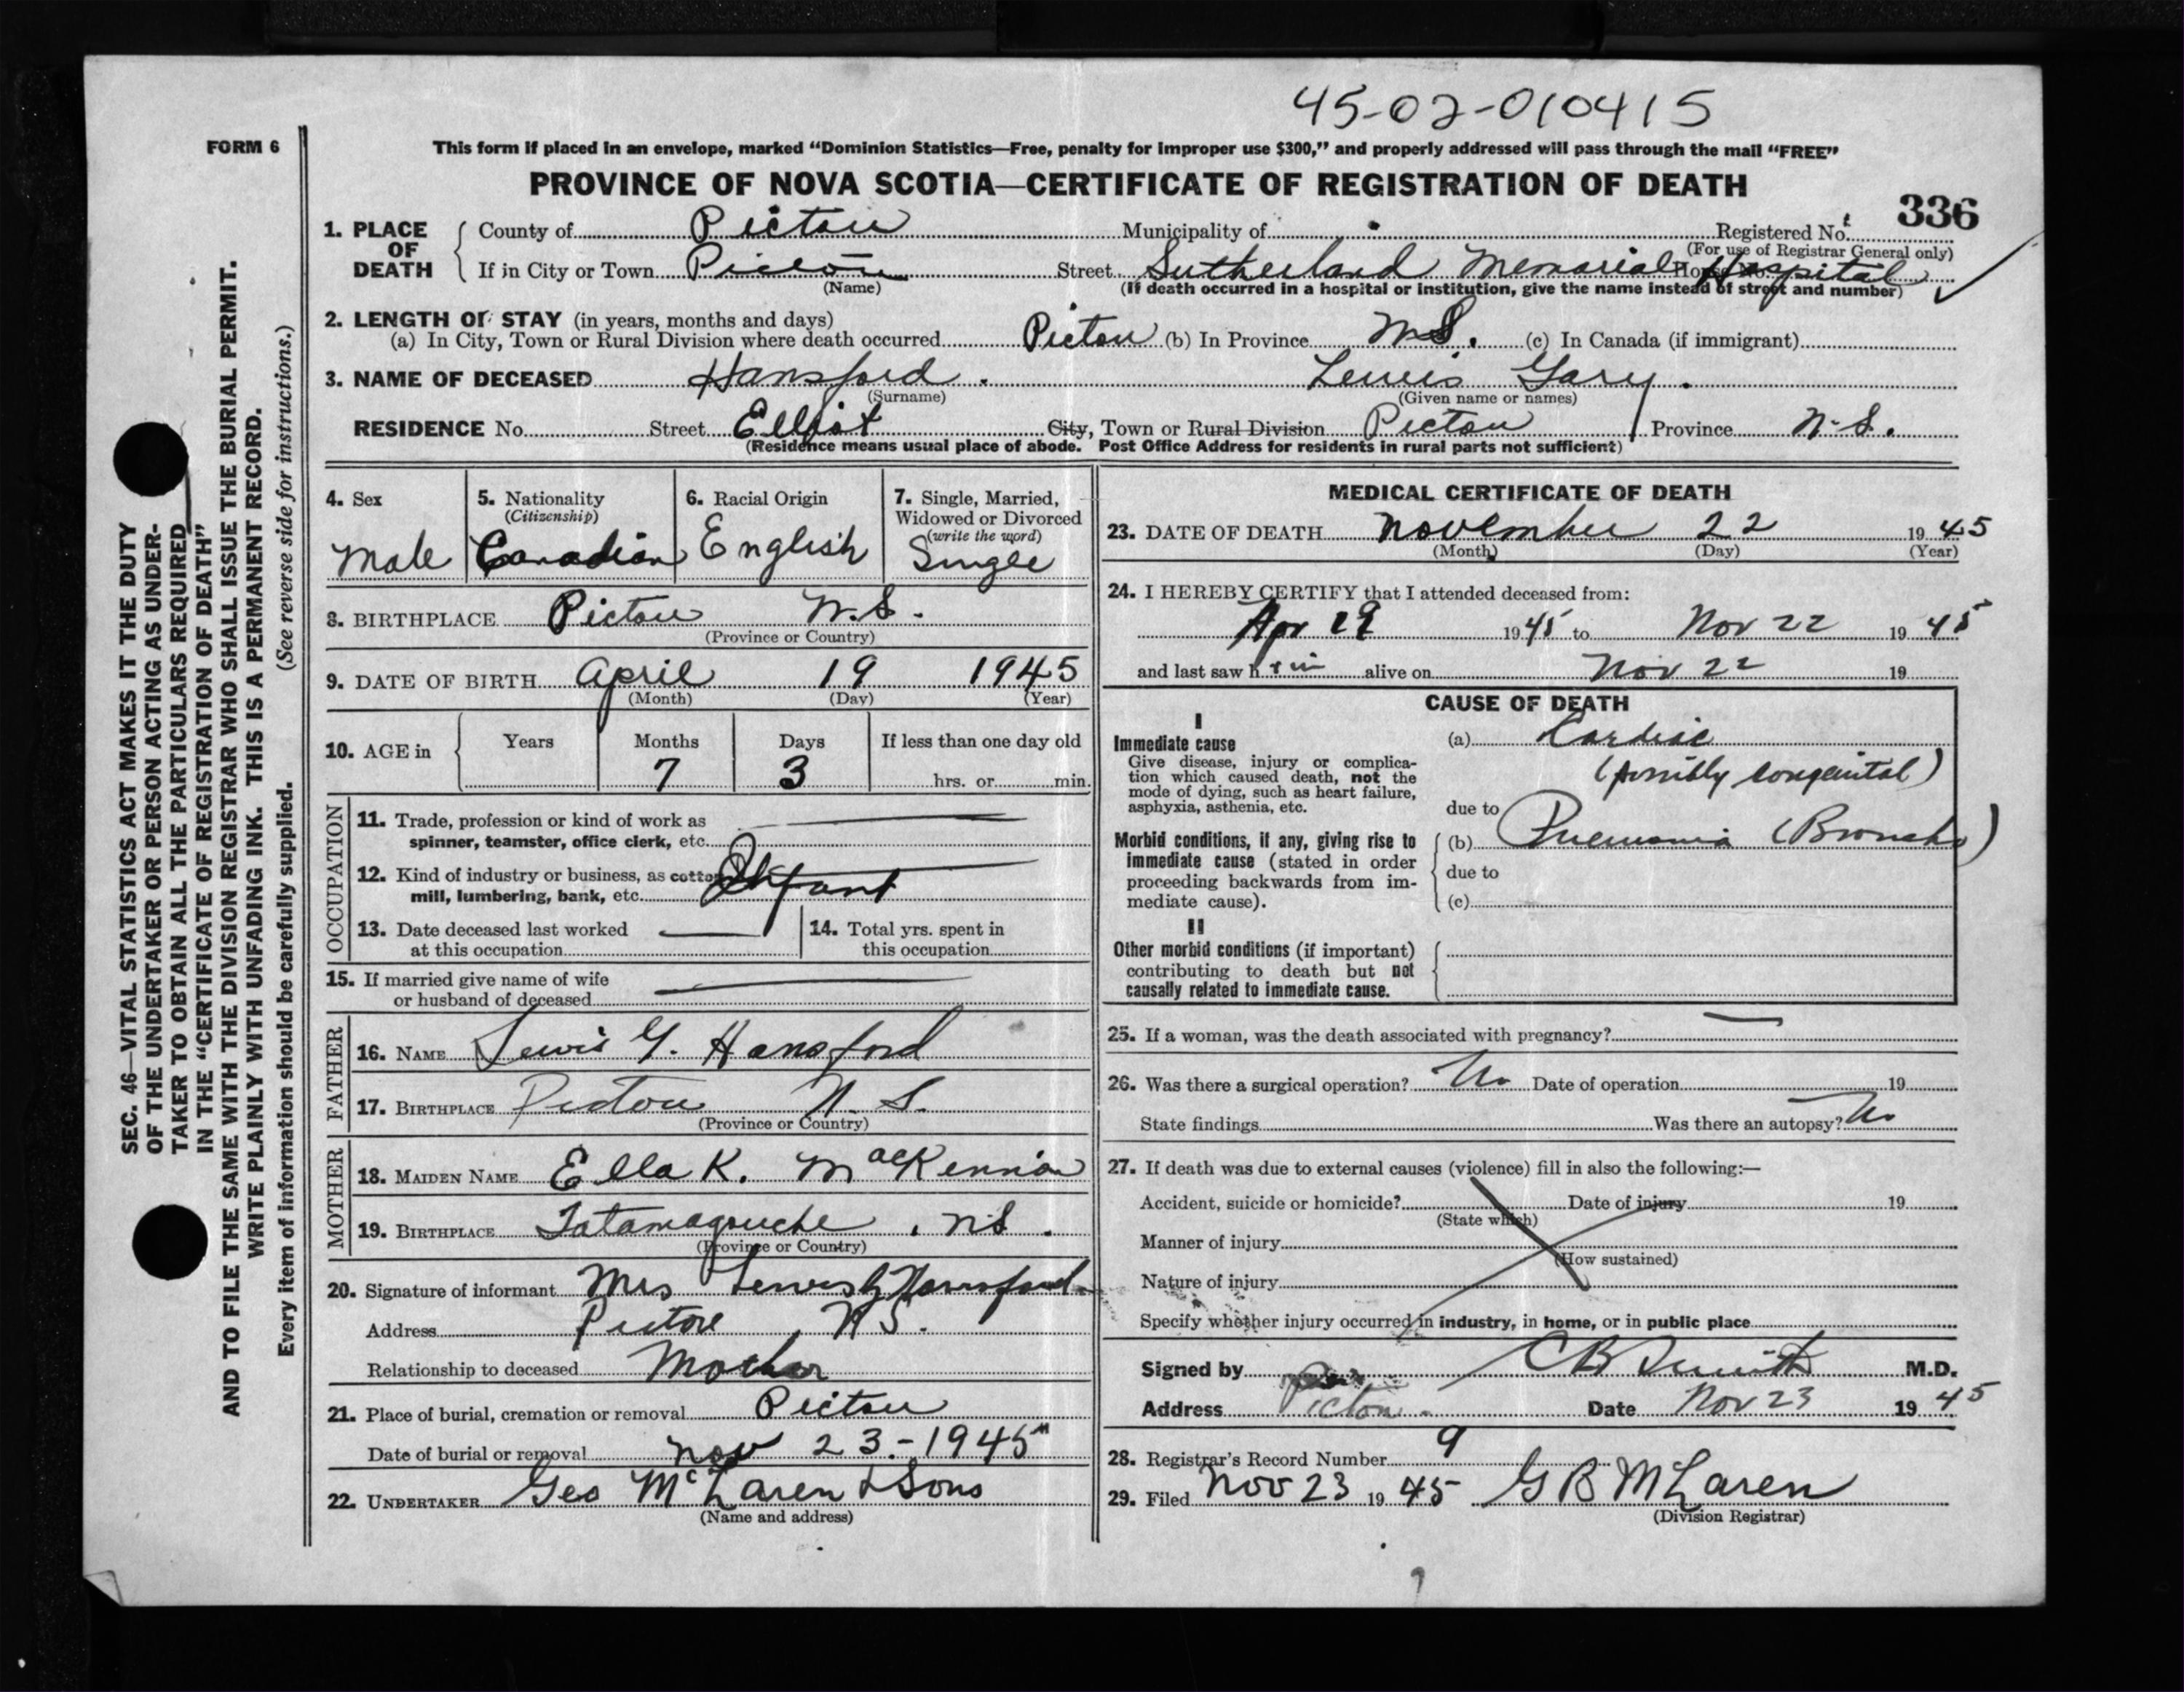 45-02-010415
FORM 6
This form if placed in an envelope, marked "Dominion Statistics—Free, penalty for improper use $300," and properly addressed will pass through the mail "FREE"
PROVINCE OF NOVA SCOTIA—CERTIFICATE OF REGISTRATION OF DEATH
336
1. PLACE OF DEATH County of Pictou Municipality of Registered No.
(For use of Registrar General only)
If in City or Town Pictou Street Sutherland Memorial Hospital
(Name) (If death occurred in a hospital or institution, give the name instead of street and number)
2. LENGTH OF STAY (in years, months and days)
(a) In City, Town or Rural Division where death occurred Pictou (b) In Province N.S. (c) In Canada (if immigrant)
3. NAME OF DECEASED Hansford. Lewis Gary.
(Surname) (Given name or names)
RESIDENCE No. Street Elliot City, Town or Rural Division Pictou Province N.S.
(Residence means usual place of abode. Post Office Address for residents in rural parts not sufficient)
4. Sex
Male
5. Nationality
(Citizenship)
Canadian
6. Racial Origin
English
7. Single, Married,
Widowed or Divorced
(write the word)
Single
8. BIRTHPLACE Pictou N.S.
(Province or Country)
9. DATE OF BIRTH April 19 1945
(Month) (Day) (Year)
10. AGE in Years Months Days If less than one day old
7 3 hrs. or min.
OCCUPATION
11. Trade, profession or kind of work as
spinner, teamster, office clerk, etc.
12. Kind of industry or business, as cotton
mill, lumbering, bank, etc. Infant
13. Date deceased last worked
at this occupation
14. Total yrs. spent in
this occupation
15. If married give name of wife
or husband of deceased
FATHER
16. NAME Lewis G. Hansford
17. BIRTHPLACE Pictou N.S.
(Province or Country)
MOTHER
18. MAIDEN NAME Ella K. MacKennon
19. BIRTHPLACE Tatamagouche, NS.
(Province or Country)
20. Signature of informant Mrs Lewis G Hansford
Address Pictou, NS.
Relationship to deceased Mother
21. Place of burial, cremation or removal Pictou
Date of burial or removal Nov 23.-1945
22. UNDERTAKER Geo McLaren & Sons
(Name and address)
MEDICAL CERTIFICATE OF DEATH
23. DATE OF DEATH November 22 1945
(Month) (Day) (Year)
24. I HEREBY CERTIFY that I attended deceased from:
Apr 19 1945 to Nov 22 1945
and last saw him alive on Nov 22 19
CAUSE OF DEATH
I
Immediate cause
Give disease, injury or complica-
tion which caused death, not the
mode of dying, such as heart failure,
asphyxia, asthenia, etc.
(a) Cardiac
(possibly congenital)
due to
Morbid conditions, if any, giving rise to
immediate cause (stated in order
proceeding backwards from im-
mediate cause).
(b) Pneumonia (Broncho)
due to
(c)
II
Other morbid conditions (if important)
contributing to death but not
causally related to immediate cause.
25. If a woman, was the death associated with pregnancy?
26. Was there a surgical operation? No Date of operation 19
State findings Was there an autopsy? No
27. If death was due to external causes (violence) fill in also the following:—
Accident, suicide or homicide? Date of injury 19
(State which)
Manner of injury
(How sustained)
Nature of injury
Specify whether injury occurred in industry, in home, or in public place
Signed by C B Smith M.D.
Address Pictou. Date Nov 23 1945
28. Registrar's Record Number 9
29. Filed Nov 23 1945 G B McLaren
(Division Registrar)
SEC. 46—VITAL STATISTICS ACT MAKES IT THE DUTY
OF THE UNDERTAKER OR PERSON ACTING AS UNDER-
TAKER TO OBTAIN ALL THE PARTICULARS REQUIRED
IN THE "CERTIFICATE OF REGISTRATION OF DEATH"
AND TO FILE THE SAME WITH THE DIVISION REGISTRAR WHO SHALL ISSUE THE BURIAL PERMIT.
WRITE PLAINLY WITH UNFADING INK. THIS IS A PERMANENT RECORD.
Every item of information should be carefully supplied. (See reverse side for instructions.)